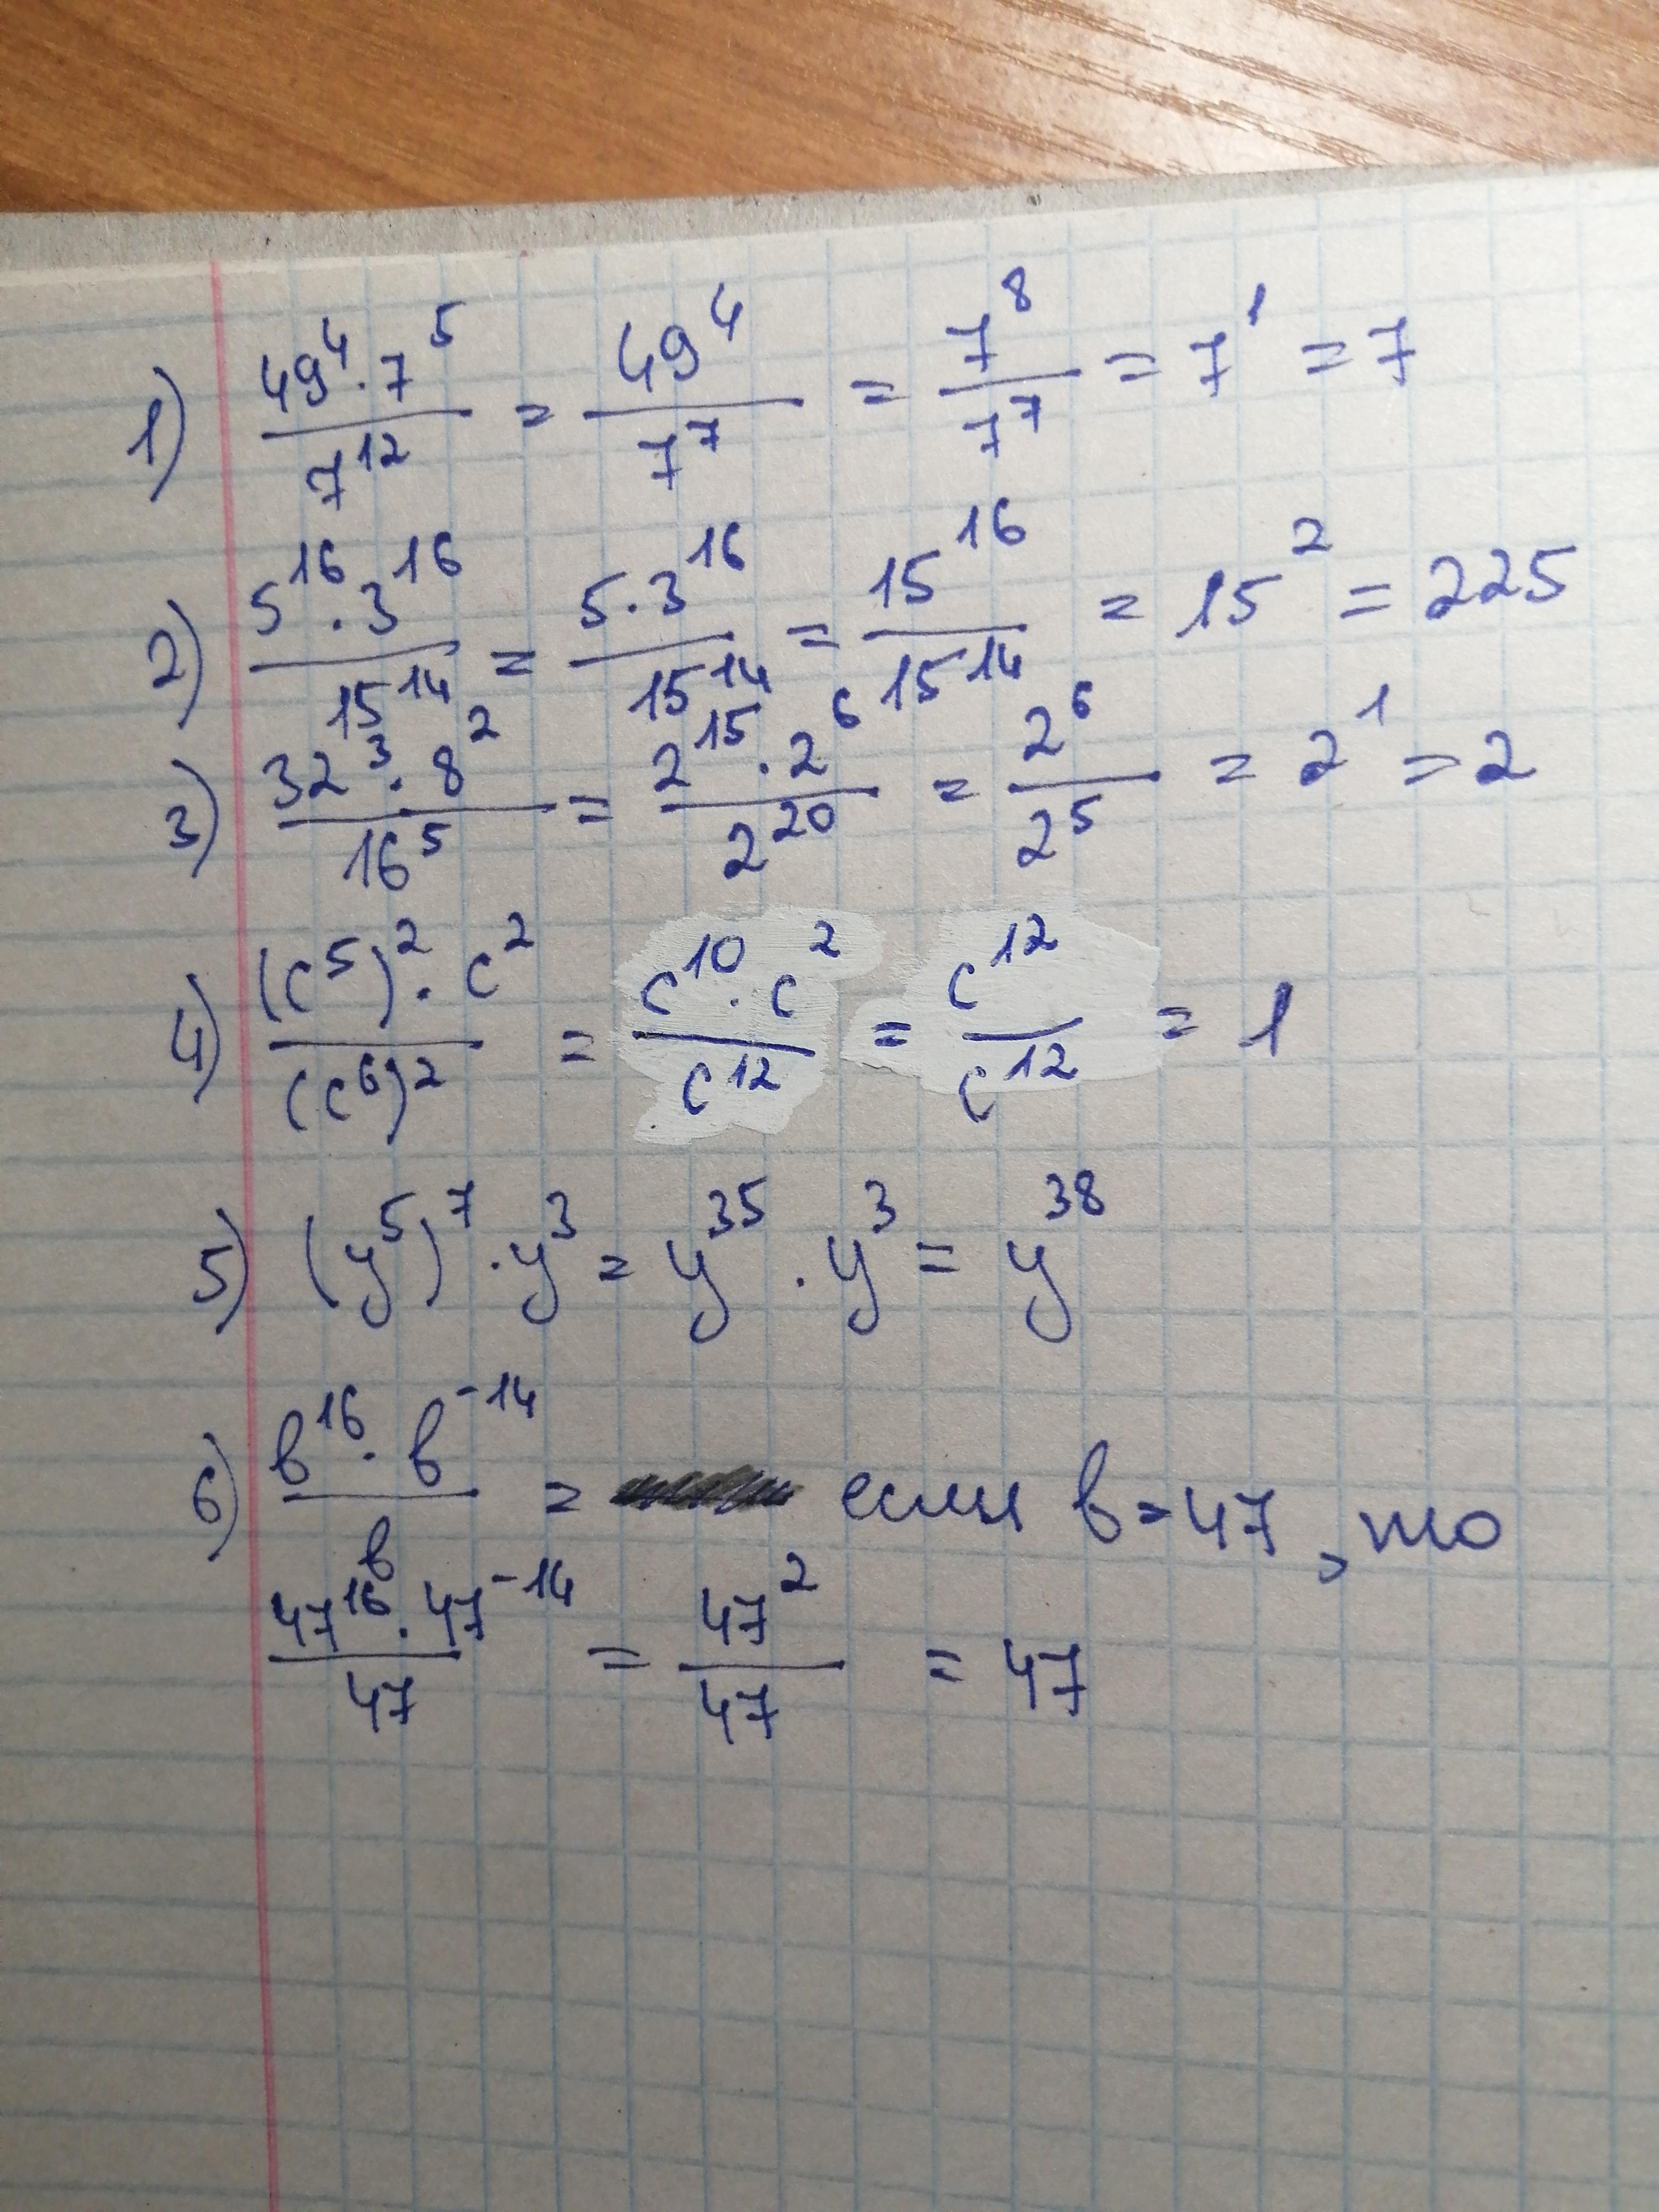 1) 49⁴·7⁵/7¹² = 49⁴/7⁷ = 7⁸/7⁷ = 7¹ = 7
2) 5¹⁶·3¹⁶/15¹⁴ = 5·3¹⁶/15¹⁴ = 15¹⁶/15¹⁴ = 15² = 225
3) 32³·8²/16⁵ = 2¹⁵·2⁶/2²⁰ = 2⁶/2⁵ = 2¹ = 2
4) (c⁵)²·c²/(c⁶)² = c¹⁰·c²/c¹² = c¹²/c¹² = 1
5) (y⁵)⁷·y³ = y³⁵·y³ = y³⁸
6) в¹⁶·в⁻¹⁴/в = если в=47, то
47¹⁶·47⁻¹⁴/47 = 47²/47 = 47